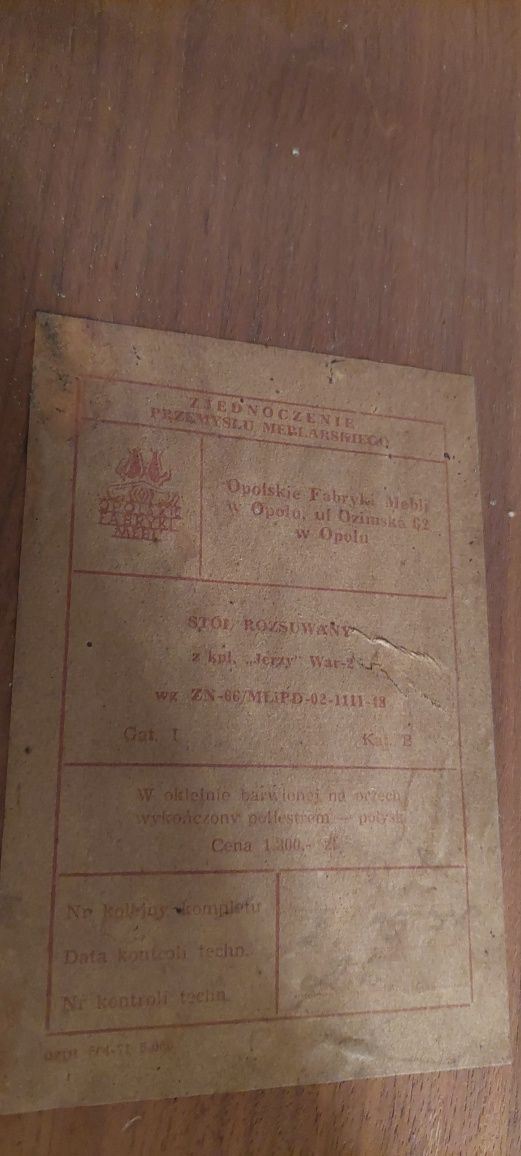 ZJEDNOCZENIE
PRZEMYSŁU MEBLARSKIEGO
OPOLSKIE
FABRYKI
MEBLI
Opolskie Fabryki Mebli
w Opolu, ul Ozimska 62
w Opolu
STÓŁ ROZSUWANY
z kpl. „Jerzy" War-2
wg ZN-66/MLiPD-02-1111-48
Gat. I Kat. B
W okleinie barwionej na orzech
wykończony poliestrem — połysk
Cena 1.300,- zł
Nr kolejny kompletu
Data kontroli techn.
Nr kontroli techn.